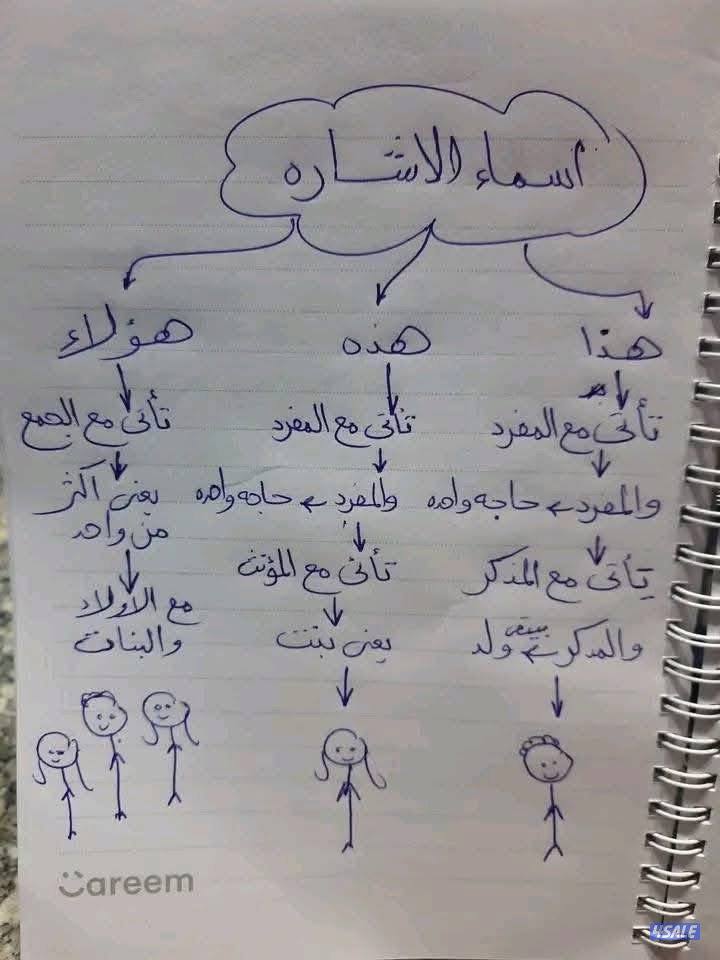 أسماء الاشاره
هذا
هذه
هؤلاء
تأتى مع المفرد
تأتى مع المفرد
تأتى مع الجمع
والمفرد حاجه واحده
والمفرد حاجه واحده
يعنى اكثر
من واحد
يتأتى مع المذكر
تأتى مع المؤنث
مع الاولاد
والبنات
والمذكر بيبقى ولد
يعنى بنت
Careem
4SALE